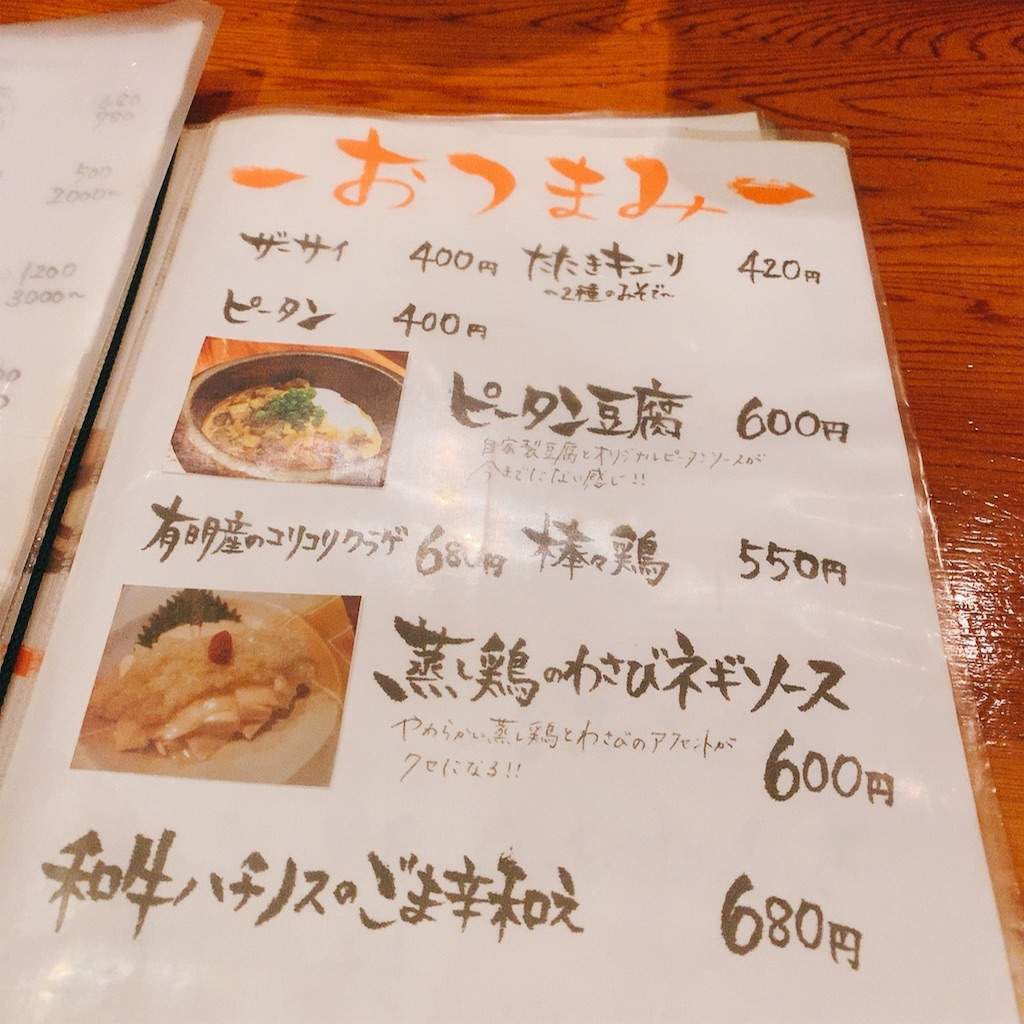 -おつまみ-
ザーサイ 400円 たたきキューリ 420円
~2種のみそで~
ピータン 400円
ピータン豆腐 600円
自家製豆腐とオリジナルピータンソースが
今までにない感じ!!
有明産のコリコリクラゲ 680円 棒々鶏 550円
蒸し鶏のわさびネギソース
やわらかい蒸し鶏とわさびのアクセントが
クセになる!! 600円
和牛ハチノスのごま辛和え 680円
500
2000~
1200
3000~